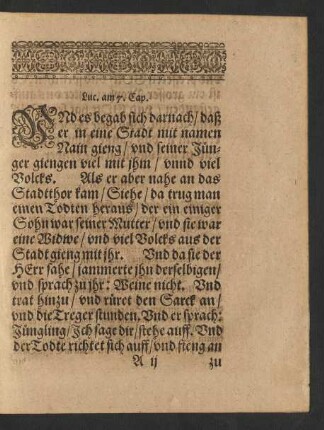 Luc. am 7. Cap.
VNd es begab sich darnach / daß
er in eine Stadt mit namen
Nain gieng / vnd seiner Jün-
ger giengen viel mit jhm / vnnd viel
Volcks. Als er aber nahe an das
Stadtthor kam / Siehe / da trug man
einen Todten heraus / der ein einiger
Sohn war seiner Mutter / vnd sie war
eine Widwe / vnd viel Volcks aus der
Stadt gieng mit jhr. Vnd da sie der
HErr sahe / jammerte jhn derselbigen /
vnd sprach zu jhr: Weine nicht. Vnd
trat hinzu / vnd rüret den Sarck an /
vnd die Treger stunden. Vnd er sprach:
Jüngling / Ich sage dir / stehe auff. Vnd
der Todte richtet sich auff / vnd fieng an
A ij zu